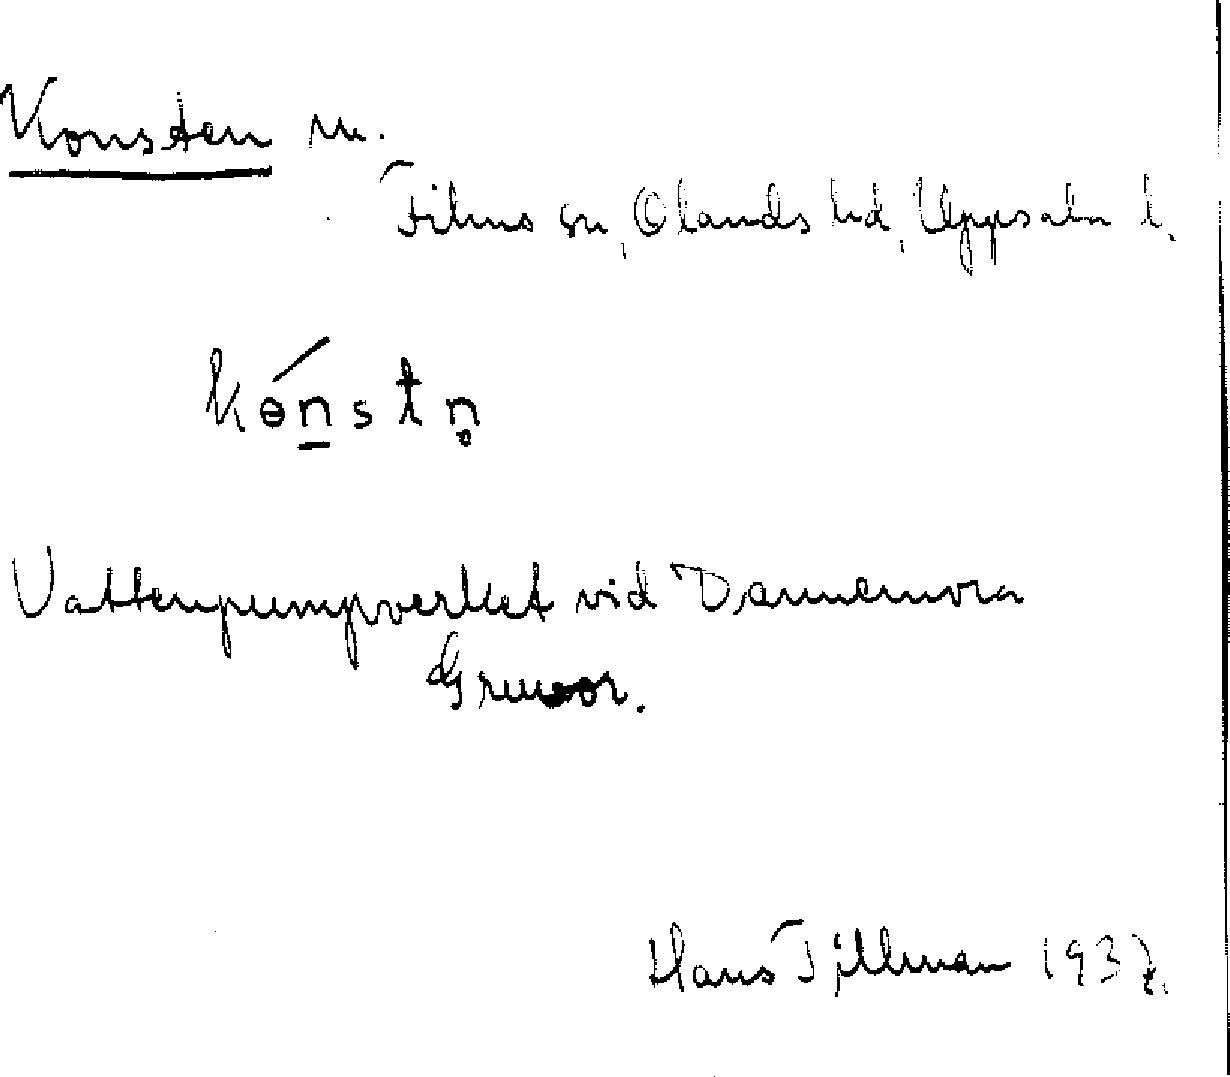 Konsten m.
Films sn, Olands hd, Uppsala l.
kónstn̥
Vattenpumpverket vid Dannemora
Gruvor.
Hans Tillman 1937.